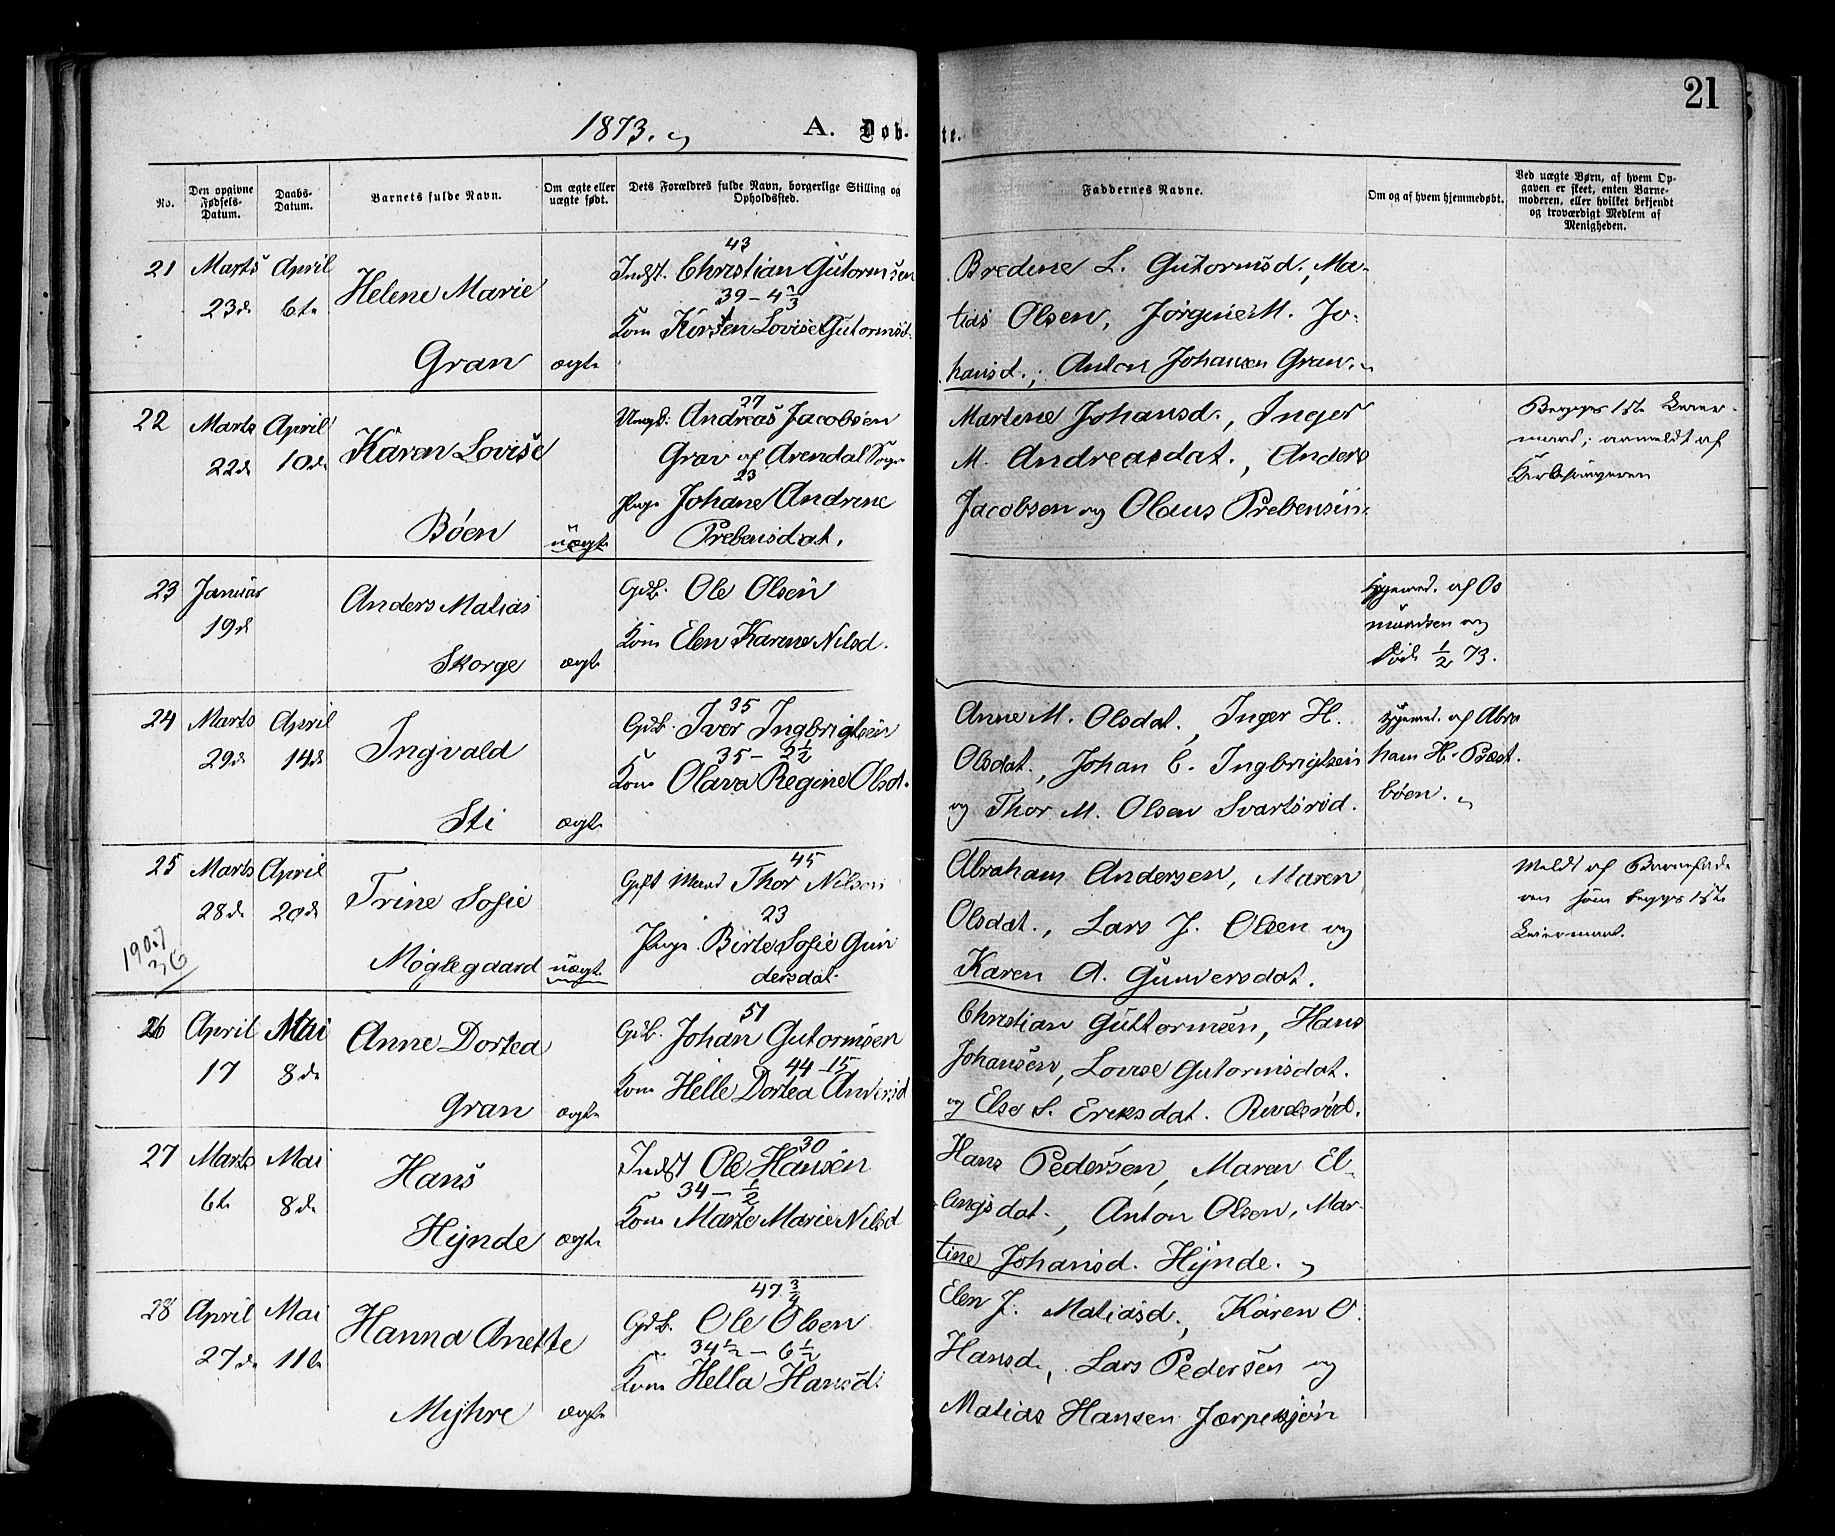 21
1873.
A. Døb-
te.
No.
Den opgivne Fødsels-Datum.
Daabs-Datum.
Barnets fulde Navn.
Om ægte eller uægte født.
Dets Forældres fulde Navn, borgerlige Stilling og Opholdssted.
Faddernes Navne.
Om og af hvem hjemmedøbt.
Ved uægte Børn, af hvem Op-
gaven er skeet, enten Barne-
moderen, eller hvilket bekjendt
og troværdigt Medlem af
Menigheden.
21 Marts 23de April 6te Helene Marie
Gran ægte
43
Indst. Christian Gutormsen
39 - 4 2/3
Kone Kirsten Lovise Gutormsd.
Bredine L. Gutormsd., Ma-
tias Olsen, Jørgine M. Jo-
hansd., Anton Johansen Gran.
22 Marts 22de April 10de Karen Lovise
Bøen uægte
27
Ungk. Andreas Jacobsen
Grav af Arendal Sogn
23
Pige Johane Andrine
Prebensdat.
Martine Johansd., Inger
M. Andreasdat., Anders
Jacobsen og Olaus Prebensen
Begges 1ste Leier-
maal; anmeldt af
Kirkesangeren
23 Januar 19de Anders Matias
Skorge ægte
Gdb. Ole Olsen
Kone Elen Karene Nilsd.
Hjemmed. af Os
mundsen og
død 1/2 73.
24 Marts 29de April 14de Ingvald
Sti ægte
35
Gdb. Iver Ingbrigtsen
35 - 2 1/2
Kone Olava Regine Olsd.
Anne M. Olsdat., Inger H.
Olsdat., Johan C. Ingbrigtsen
og Thor M. Olsen Svartsrød.
Hjemmed. af Abra
ham H. Præst-
bøen.
25 Marts 28de April 20de Trine Sofie
Møglegaard uægte
1907
45
Gift Mand Thor Nilsen
23
Pige Birte Sofie Gun
dersdat.
Abraham Andersen, Maren
Olsdat., Lars J. Olsen og
Karen A. Gunversdat.
Meldt af Barnefade
ren som begges 1ste
Leiermaal.
26 April 17 Mai 8de Anne Dortea
Gran ægte
51
Gdb. Johan Gutormsen
44 - 15
Kone Helle Dortea Andersd
Christian Guttormsen, Hans
Johansen, Lovise Gutormsdat.
og Else S. Eriksdat. Rødsrød.
27 Marts 6te Mai 8de Hans
Hijnde ægte
30
Indst Ole Hansen
34 - 1/2
Kone Marte Marie Nilsd
Hans Pedersen, Maren El-
lingsdat., Anton Olsen, Mar-
tine Johansd. Hijnde.
28 April 27de Mai 11te Hanna Anette
Mijhre ægte
47 3/4
Gdb. Ole Olsen
34 1/2 - 6 1/2
Kone Hella Hansd.
Elen J. Matiasd., Karen O.
Hansd., Lars Pedersen og
Matias Hansen Jærpeksjøn